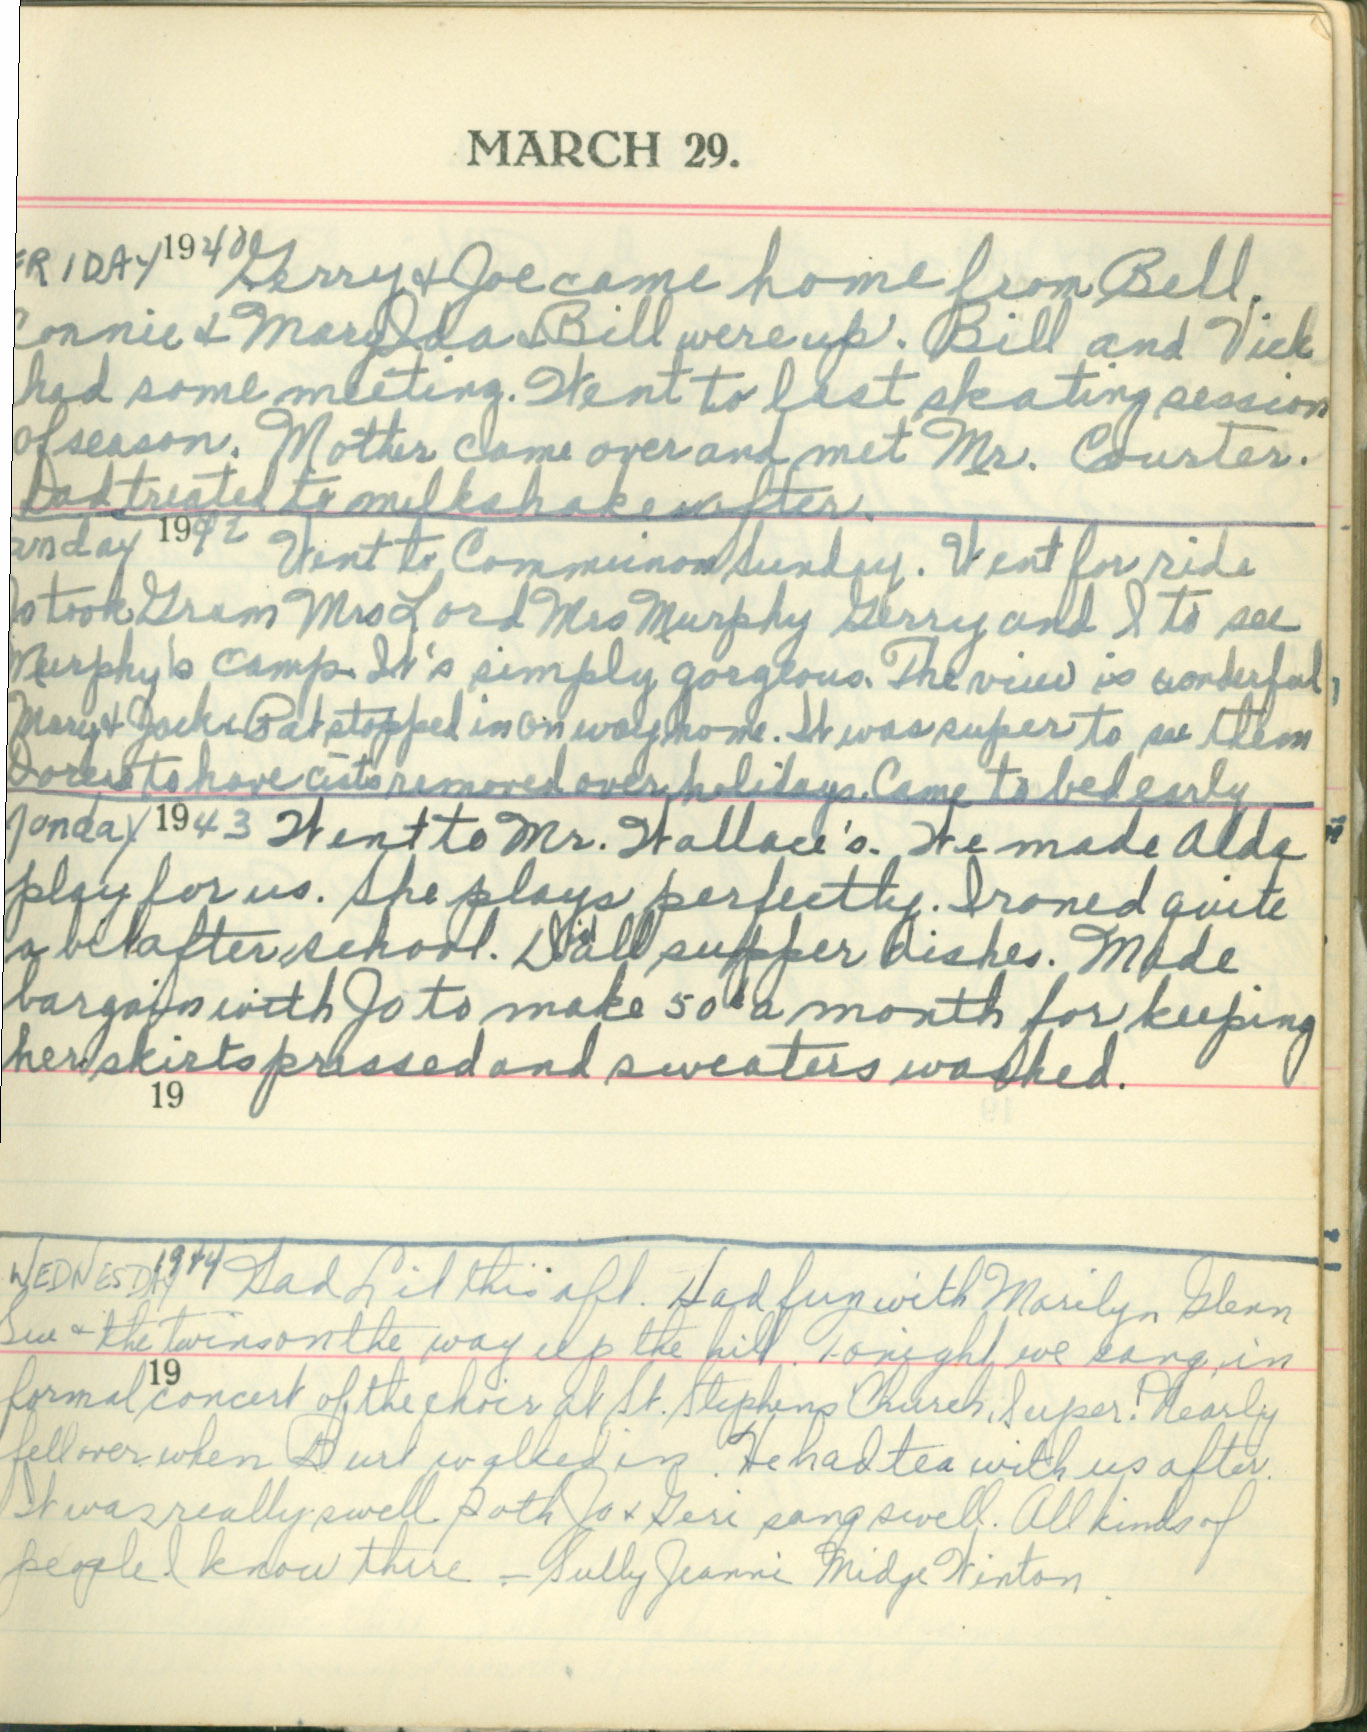 MARCH 29.
FRIDAY 1940 Gerry & Joe came home from Bell.
Connie & Mary Ida & Bill were up. Bill and Vick
had some meeting. Went to last skating session
of season. Mother came over and met Mr. Courter.
Dad treated to milkshake after.
Sunday 1942 Went to Communion Sunday. Went for ride
Jo took Gram Mrs Lord Mrs Murphy Gerry and I to see
Murphy's camp. It's simply gorgeous. The view is wonderful
Mary & Jack & Pat stopped in on way home. It was super to see them
to have removed over holidays. Came to bed early
Monday 1943 Went to Mr. Wallace's. We made Alda
play for us. She plays perfectly. Ironed quite
a bit after school. Did all supper dishes. Made
bargain with Jo to make 50¢ a month for keeping
her skirts pressed and sweaters washed.
19
WEDNESDAY 1944 Had Lit this aft. Had fun with Marilyn Glenn
Sue & the twins on the way up the hill. Tonight we sang in
19
formal concert of the choir at St. Stephens Church. Super! Nearly
fell over when Burt walked in. He had tea with us after.
It was really swell. Both Jo & Geri sang swell. All kinds of
people I know there – Sully Jeanni Midge Winton.